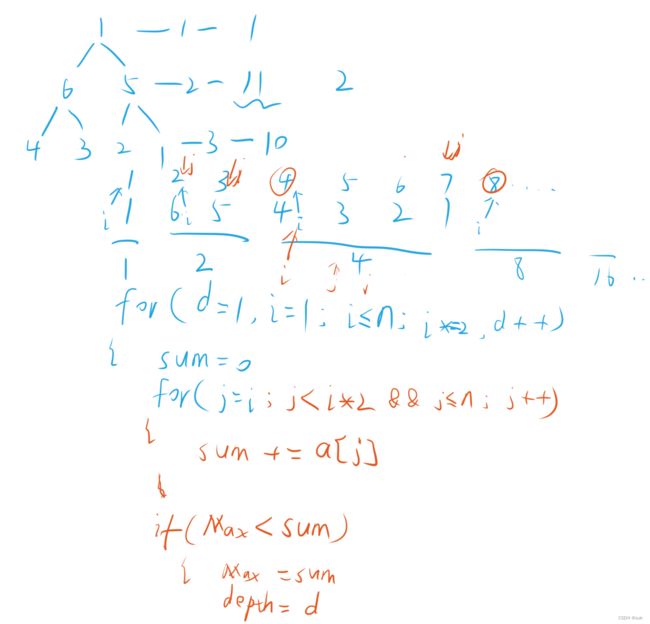 1 — 1 — 1
6 5 — 2 — 11 2
4 3 2 1 — 3 — 10
1 2 j 3 j 4 5 6 7 j 8 ....
i 1 6 i 5 4 i 3 2 1 i
i j
1 2 4 8 16 ..
for( d=1, i=1; i≤n; i*=2, d++)
{ sum=0
for( j=i; j<i*2 && j≤n; j++)
{
sum += a[j]
}
if( Max < sum)
{ Max = sum
depth= d